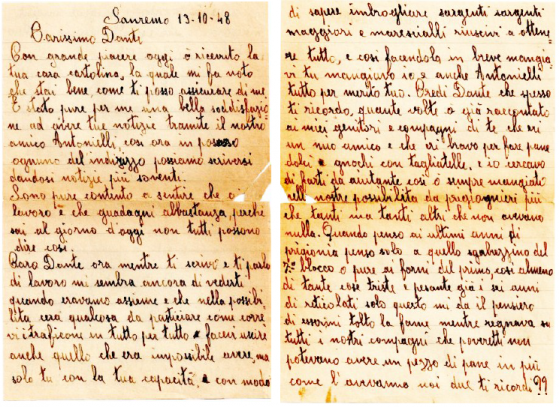 Sanremo 13-10-48
Carissimo Dante
Con grande piacere oggi ò ricevuto la
tua cara cartolina, la quale mi fa noto
che stai bene, come ti posso assicurare di me
È stato pure per me una bella soddisfazio
ne ad avere tue notizie tramite il nostro
amico Antonielli, così ora in possesso
ognuno del indirizzo possiamo scriversi
dandosi notizie più soventi.
Sono pure contento a sentire che ai
lavoro e che guadagni abbastanza perché
sai al giorno d'oggi non tutti possono
dire così
Caro Dante ora mentre ti scrivo e ti parlo
di lavoro mi sembra ancora di vederti
quando eravamo assieme e che nella possibi
lità cera qualcosa da pasticiare come corre
vi itraficoni in tutto per tutto e facevi uscire
anche quello che era impossibile avere, ma
solo tu con la tua capacità e con modo
di sapere imbrogliare sargenti sargenti
maggiori e marescialli riuscivi a ottene
re tutto, e così facendola in breve mangia
vi tu mangiavo io e anche Antonielli
tutto per merito tuo. Credi Dante che spesso
ti ricordo, quante volte ò già raccontato
ai miei genitori e compagni di te che eri
un mio amico e che eri bravo per fare pane
dolci e gnochi con tagliatelle, e io cercavo
di farti da aiutante così ò sempre mangiato
nelle nostre possibilità da prigionieri più
che tanti ma tanti altri che non avevano
nulla. Quando penso ai ultimi anni di
prigionia penso solo a quello sgabuzzino del
2° blocco o pure ai forni del primo, così almeno
di tante cose triste e pesante già i sei anni
di reticolati solo questo mi dà il pensiero
di essermi tolto la fame mentre regnava su
tutti i nostri compagni che poveretti non
potevano avere un pezzo di pane in più
come l'avevamo noi due ti ricordi ??